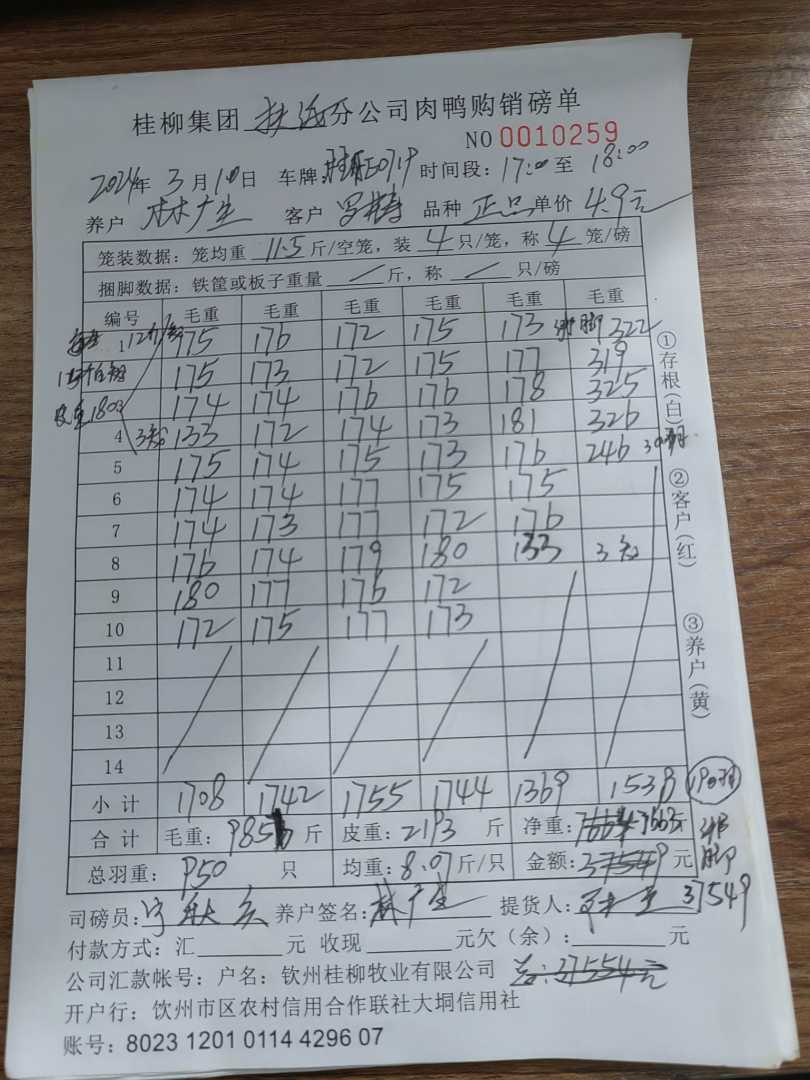 桂柳集团 分公司肉鸭购销磅单
NO 0010259
2024年 3月10日 车牌: 时间段: 17:00 至 18:00
养户 林广生 客户 品种 正品 单价 4.9元
笼装数据: 笼均重 11.5 斤/空笼, 装 4 只/笼, 称 4 笼/磅
捆脚数据: 铁筐或板子重量 / 斤, 称 / 只/磅
编号 毛重 毛重 毛重 毛重 毛重 毛重
1 175 176 172 175 173 绑脚 322
175 173 172 175 177 319
174 174 176 176 178 325
4 3 133 172 174 173 181 326
5 175 174 175 173 176 246
6 174 174 177 175 175
7 174 173 177 172 176
8 176 174 179 180 133 3
9 180 177 176 172
10 172 175 177 173
11
12
13
14
小计 1708 1742 1755 1744 1369 1538
合计 毛重: 9856 斤 皮重: 2193 斤 净重: 7663 斤
总羽重: 950 只 均重: 8.07 斤/只 金额: 37549 元
绑脚
37549
司磅员: 养户签名: 林广生 提货人:
付款方式: 汇 元 收现 元欠(余): 元
公司汇款帐号: 户名: 钦州桂柳牧业有限公司 37554元
开户行: 钦州市区农村信用合作联社大垌信用社
账号: 8023 1201 0114 4296 07
①存根(白)
②客户(红)
③养户(黄)